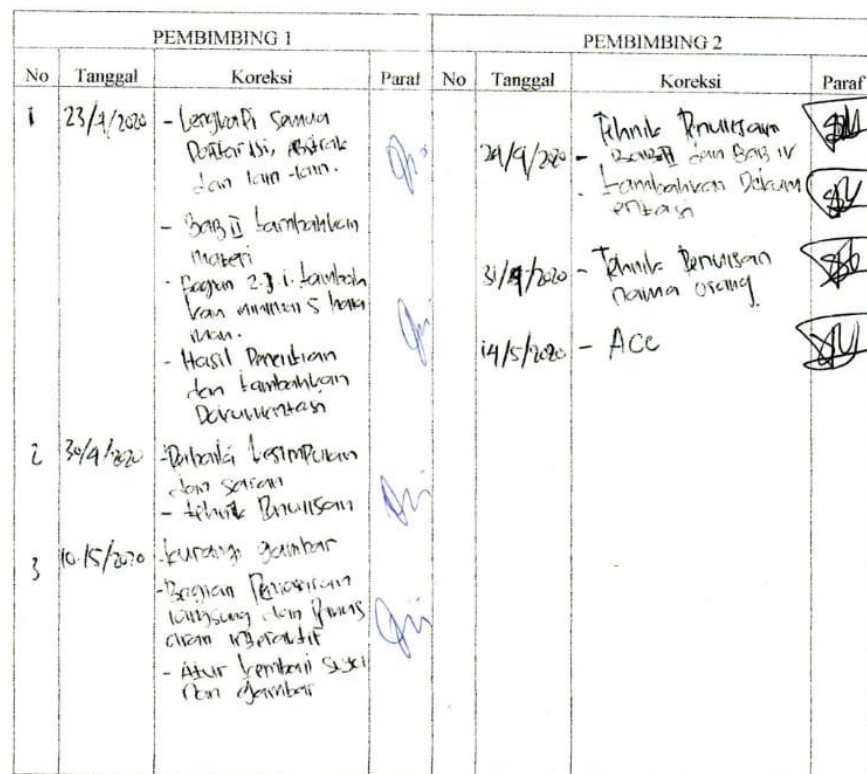 PEMBIMBING 1
No Tanggal Koreksi Paraf
1 23/4/2020 - Lengkapi Semua
Daftar Isi, Abstrak
dan lain-lain.
- BAB II tambahkan
materi
- Bagian 2.3.1. tambah
kan minimal 5 hala
man.
- Hasil Penelitian
dan tambahkan
Dokumentasi
2 30/4/2020 - Perbaiki kesimpulan
dan saran
- tehnik Penulisan
3 10/5/2020 - kurangi gambar
- Bagian Pemasaran
langsung dan Pemas
aran interaktif
- Atur kembali
gambar
PEMBIMBING 2
No Tanggal Koreksi Paraf
Tehnik Penulisan
24/4/2020 - BAB II dan BAB IV
- tambahkan Dokum
entasi
31/4/2020 - Tehnik Penulisan
nama orang
14/5/2020 - ACC